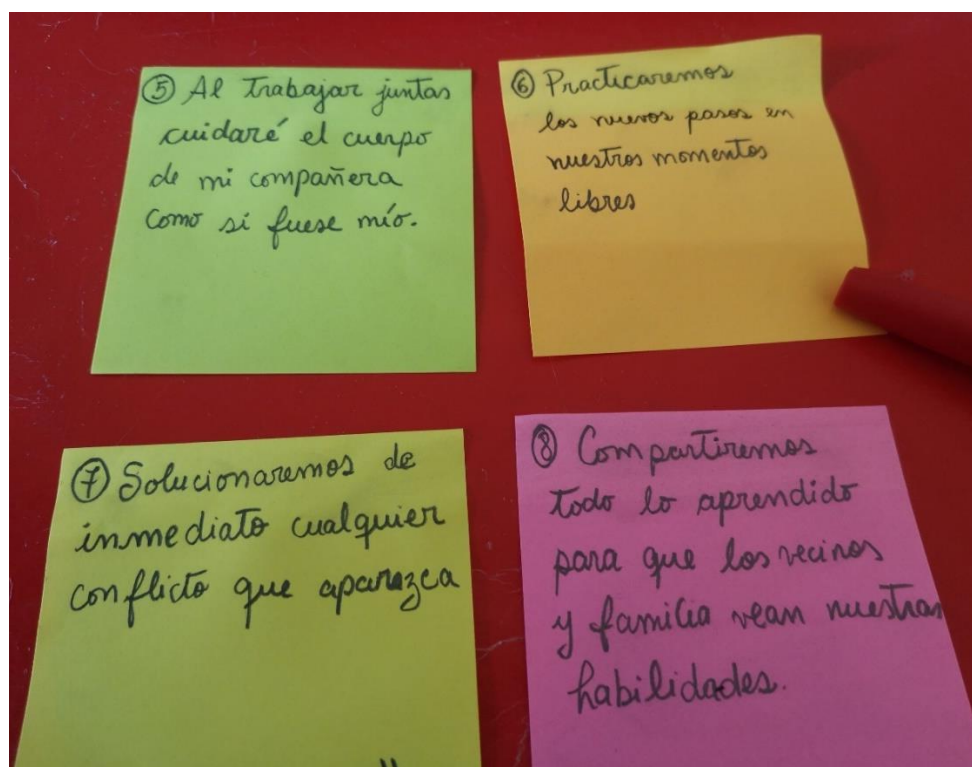 ⑤ Al trabajar juntas
cuidaré el cuerpo
de mi compañera
como si fuese mío.
⑥ Practicaremos
los nuevos pasos en
nuestros momentos
libres
⑦ Solucionaremos de
inmediato cualquier
conflicto que aparezca
⑧ Compartiremos
todo lo aprendido
para que los vecinos
y familia vean nuestras
habilidades.